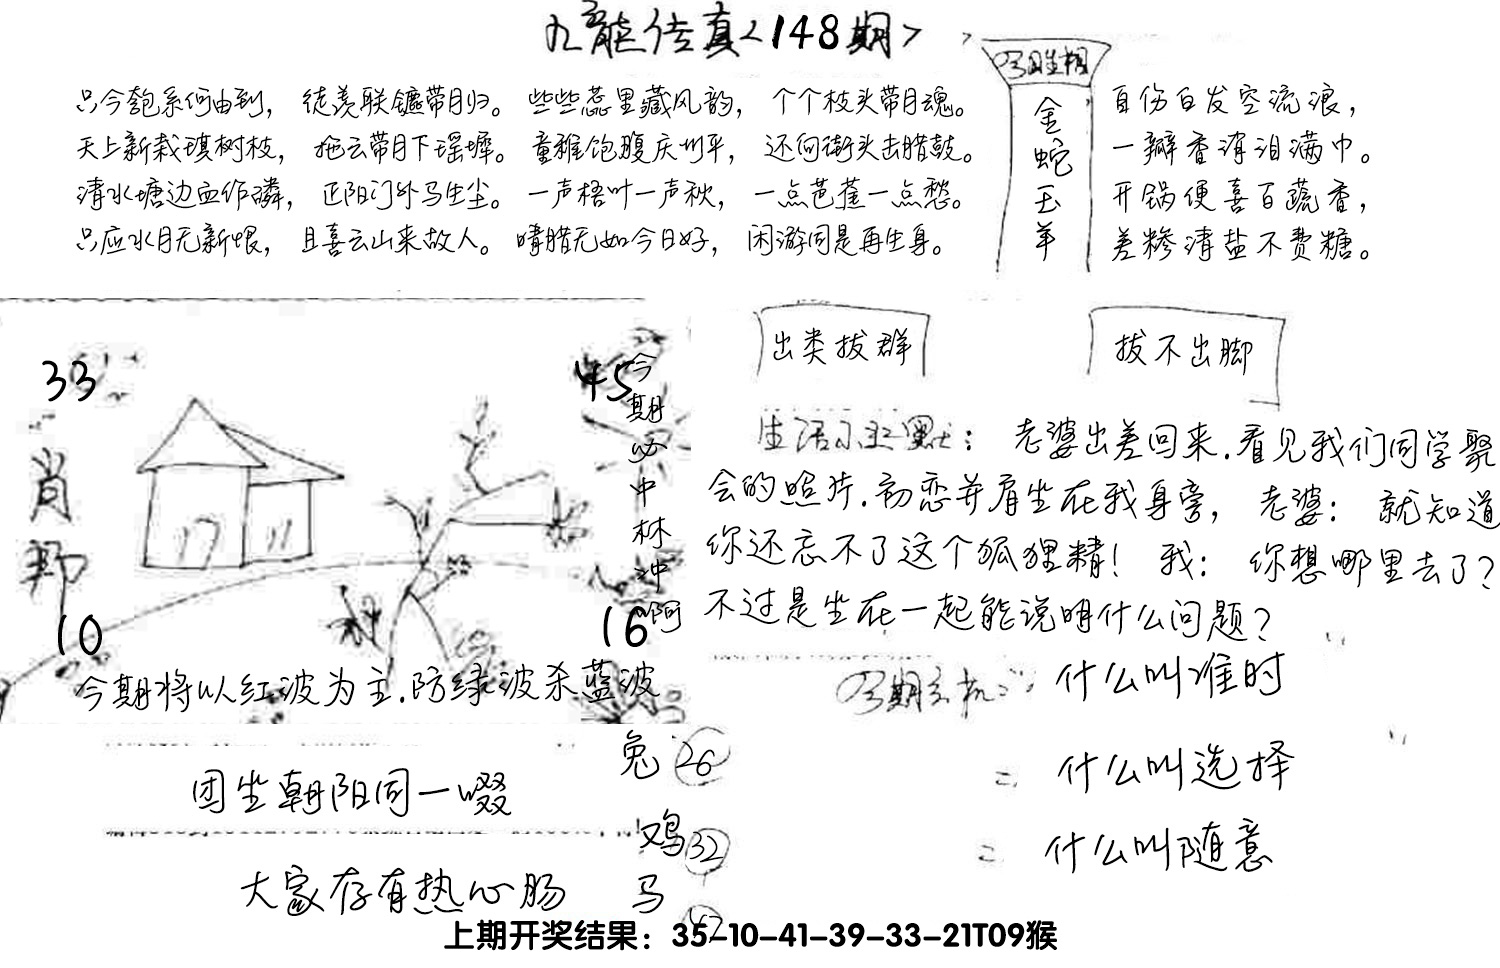 九龙传真<148期>
只今匏系何由到，徒羡联镳带月归。些些蕊里藏风韵，个个枝头带月魂。
天上新栽琪树枝，拖云带月下瑶墀。童稚饱腹庆升平，还向街头击腊鼓。
清水塘边血作磷，正阳门外马生尘。一声梧叶一声秋，一点芭蕉一点愁。
只应水月无新恨，且喜云山来故人。晴腊无如今日好，闲游同是再生身。
今日生相
金
蛇
玉
羊
自伤白发空流浪，
一瓣香消泪满巾。
开锅便喜百蔬香，
差糁清盐不费糖。
33
45
肖
10
16
今
期
必
中
林
冲
啊
今期将以红波为主.防绿波杀蓝波
出类拔群
拔不出脚
生活小幽默： 老婆出差回来.看见我们同学聚
会的照片.初恋并肩坐在我身旁，老婆：就知道
你还忘不了这个狐狸精！ 我： 你想哪里去了？
不过是坐在一起能说明什么问题？
今期玄机： 什么叫准时
= 什么叫选择
= 什么叫随意
团坐朝阳同一啜
大家存有热心肠
兔 26
鸡 32
马
上期开奖结果：35-10-41-39-33-21T09猴